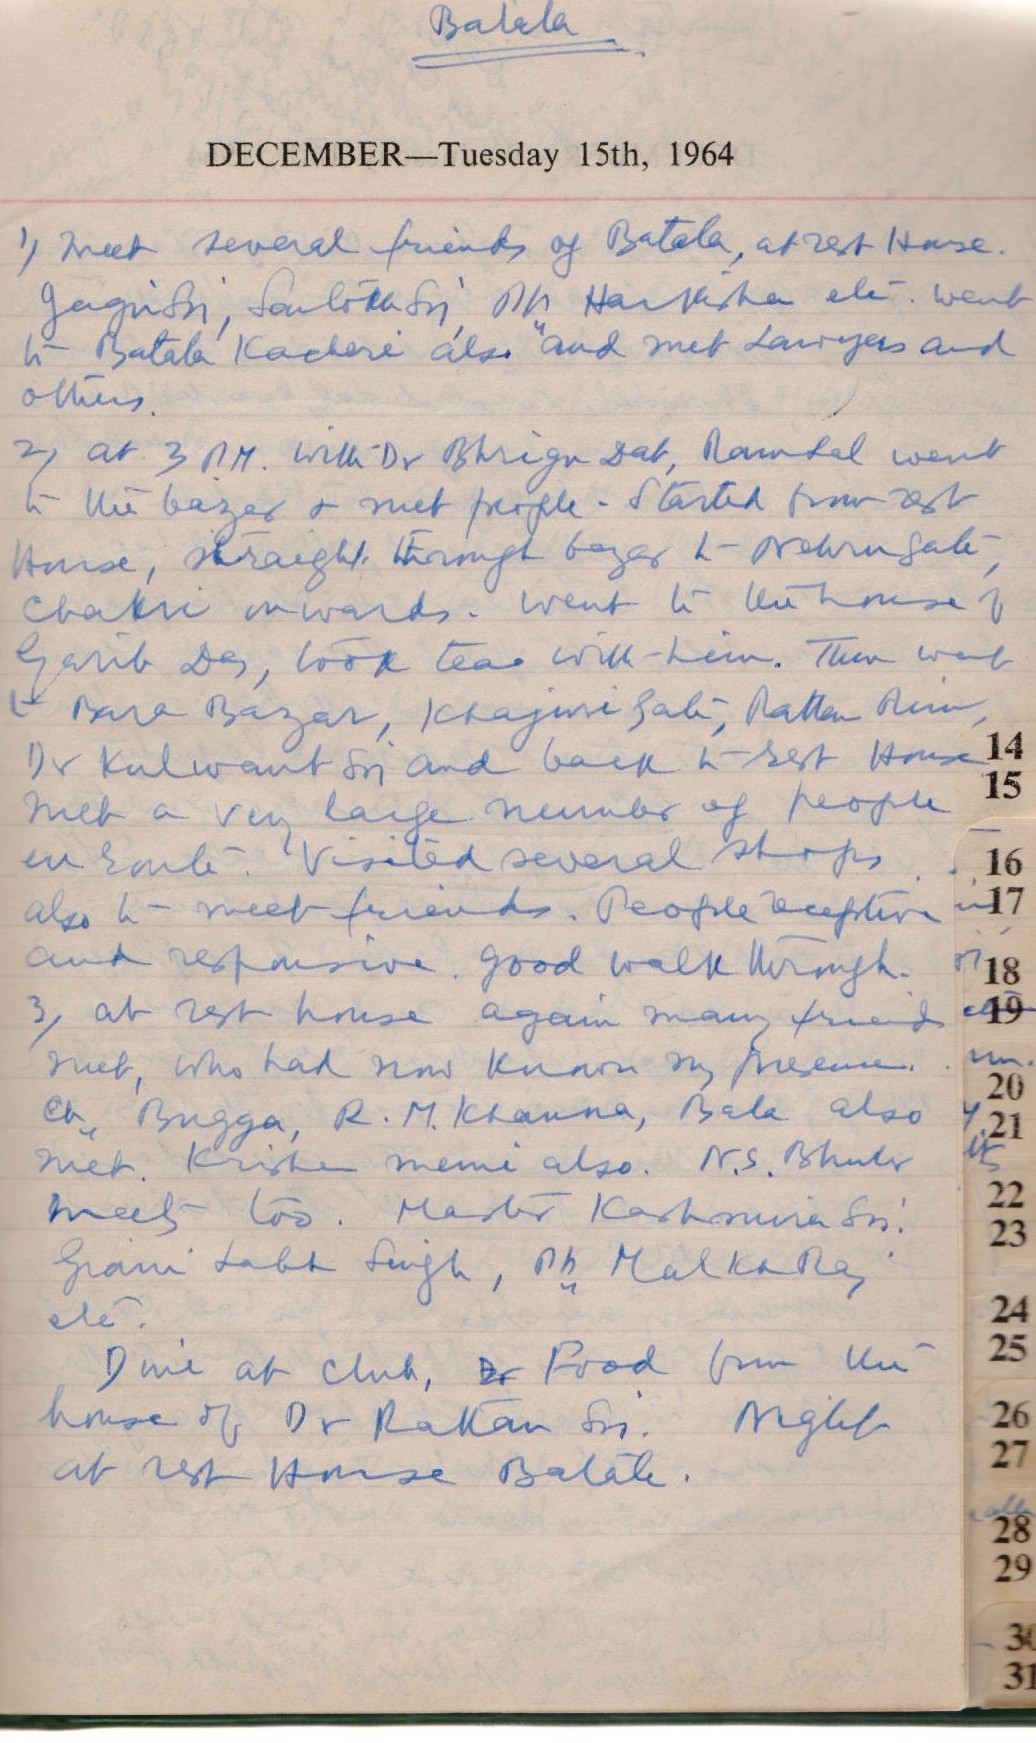 Batala
DECEMBER—Tuesday 15th, 1964
1) Meet several friends of Batala, at rest House.
Jagir Sij, Santokh Sij, Ph Harkisha etc. went
to Batala Kacheri also and met Lawyers and
others.
2) at 3 P.M. with Dr Bhrigu Dat, Ramlal went
to the bazar & met people - Started from rest
House, straight through bazar to Nehru Gate,
Chakri onwards. went to the house of
Garib Das, took tea with him. Then went
to Bara Bazar, Khajuri Gate, Rattan
Dr Kulwant Sij and back to rest House
Met a very large number of people
en route. Visited several shops
also to meet friends. People receptive
and responsive. Good walk through.
3) at rest house again many friends
met, who had now known my presence.
Ch, Bugga, R.M. Khanna, Bala also
met. Krishen also. N.S. Bhuler
meets too. Master Kashmira Sij.
Giani Labh Singh, Ph Malkha Raj
etc.
Dine at club, Food from the
house of Dr Rattan Sij. Night
at rest House Batala.
14
15
16
17
18
19
20
21
22
23
24
25
26
27
28
29
30
31